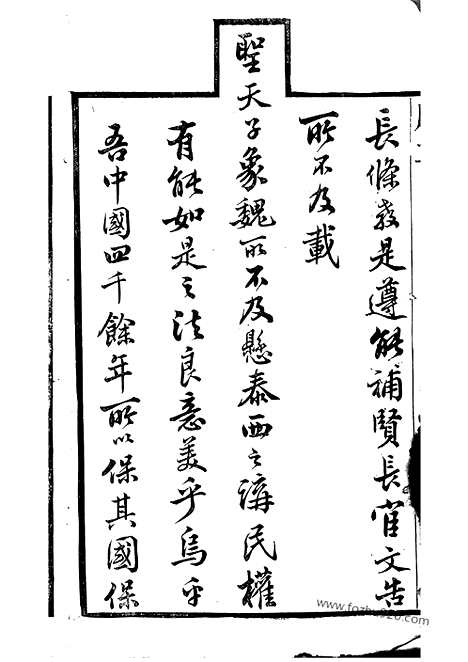 長條教是遵能補賢長官文告
所不及載
聖天子象魏所不及懸泰西之講民權
有能如是之法良意美乎烏乎
吾中國四千餘年所以保其國保
www.fozhu920.com